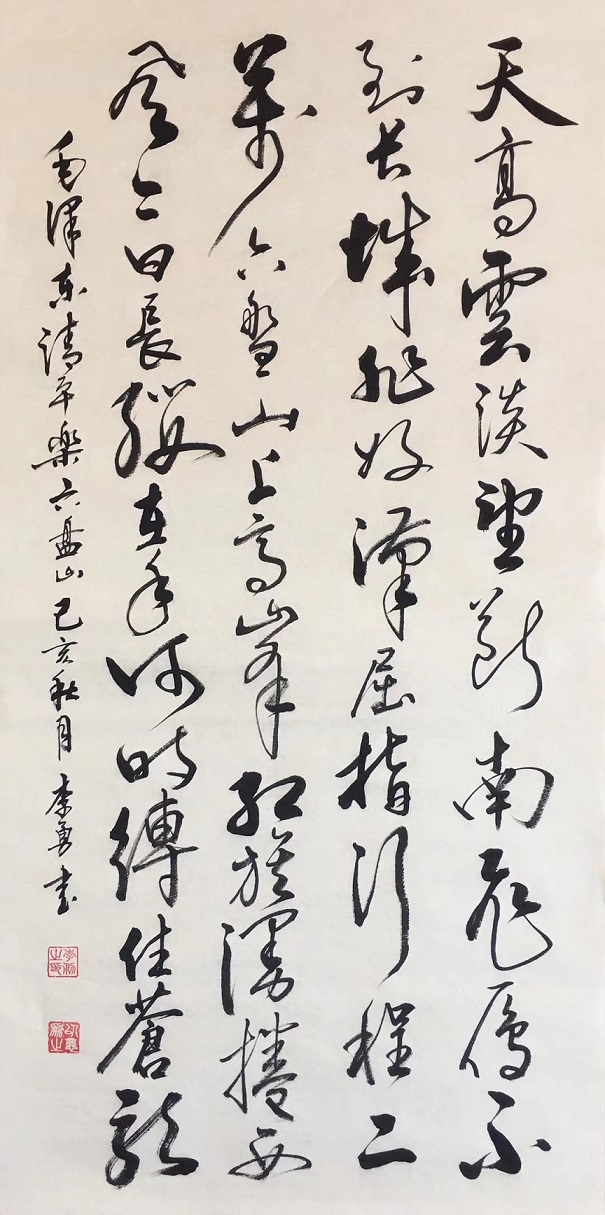 天高雲淡望斷南飛雁不
到长城非好漢屈指行程二
萬六盤山上高峰紅旗漫捲西
風今日長纓在手何時縛住蒼龍
毛澤東清平樂六盤山己亥秋月李勇書